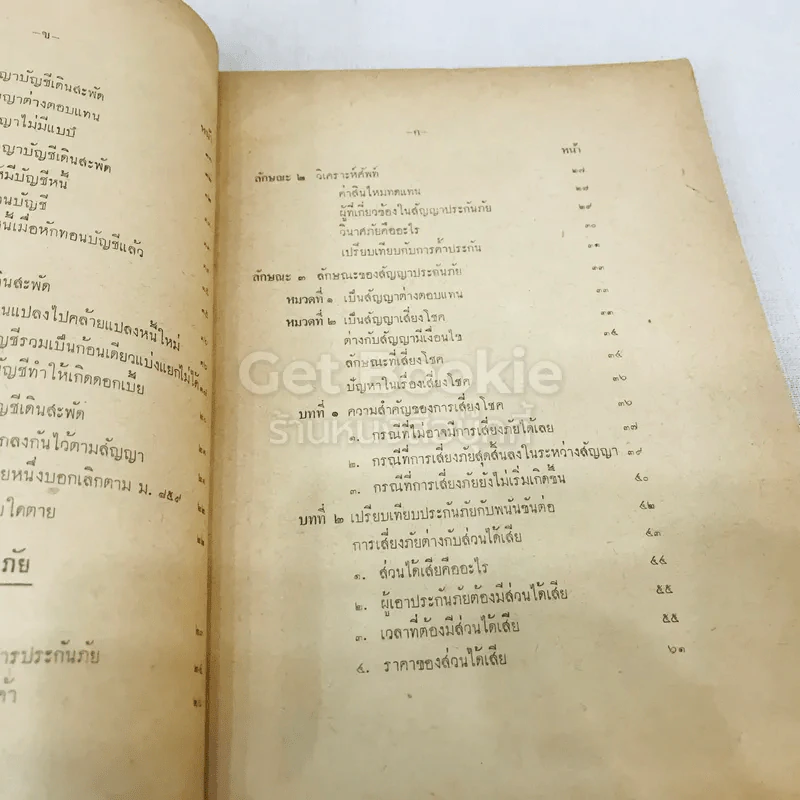 –ข–
ญาบัญชีเดินสะพัด
ญาต่างตอบแทน
ญาไม่มีแบบ
ญาบัญชีเดินสะพัด
มีบัญชีหนี้
อนบัญชี
เมื่อหักทอนบัญชีแล้ว
ดินสะพัด
นแปลงไปคล้ายแปลงหนี้ใหม่
ญชีรวมเป็นก้อนเดียวแบ่งแยกไม่ได้
บัญชีทำให้เกิดดอกเบี้ย
ญชีเดินสะพัด
กลงกันไว้ตามสัญญา
ยหนึ่งบอกเลิกตาม ม. ๘๕๙
ใดตาย
ภัย
ารประกันภัย
–ค–
หน้า
ลักษณะ ๒ วิเคราะห์ศัพท์ ๒๗
ค่าสินไหมทดแทน ๒๗
ผู้ที่เกี่ยวข้องในสัญญาประกันภัย ๒๙
วินาศภัยคืออะไร ๓๐
เปรียบเทียบกับการค้ำประกัน ๓๑
ลักษณะ ๓ ลักษณะของสัญญาประกันภัย ๓๓
หมวดที่ ๑ เป็นสัญญาต่างตอบแทน ๓๓
หมวดที่ ๒ เป็นสัญญาเสี่ยงโชค ๓๓
ต่างกับสัญญามีเงื่อนไข ๓๕
ลักษณะที่เสี่ยงโชค ๓๕
ปัญหาในเรื่องเสี่ยงโชค ๓๖
บทที่ ๑ ความสำคัญของการเสี่ยงโชค ๓๖
๑. กรณีที่ไม่อาจมีการเสี่ยงภัยได้เลย ๓๗
๒. กรณีที่การเสี่ยงภัยสุดสิ้นลงในระหว่างสัญญา ๓๙
๓. กรณีที่การเสี่ยงภัยยังไม่เริ่มเกิดขึ้น ๔๐
บทที่ ๒ เปรียบเทียบประกันภัยกับพนันขันต่อ ๔๒
การเสี่ยงภัยต่างกับส่วนได้เสีย ๔๓
๑. ส่วนได้เสียคืออะไร ๔๔
๒. ผู้เอาประกันภัยต้องมีส่วนได้เสีย ๕๕
๓. เวลาที่ต้องมีส่วนได้เสีย ๕๕
๔. ราคาของส่วนได้เสีย ๖๑